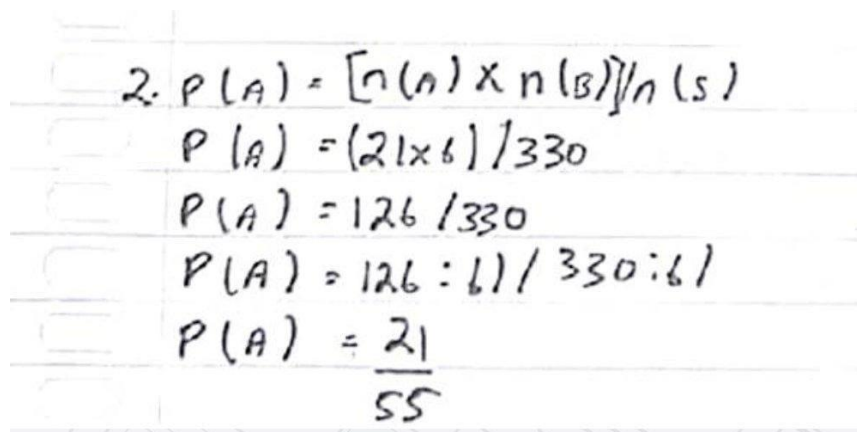 2. P(A) = [n(A) x n(B)]/n(S)
P(A) = (21x6)/330
P(A) = 126/330
P(A) = 126:6)/330:6)
P(A) = 21
55